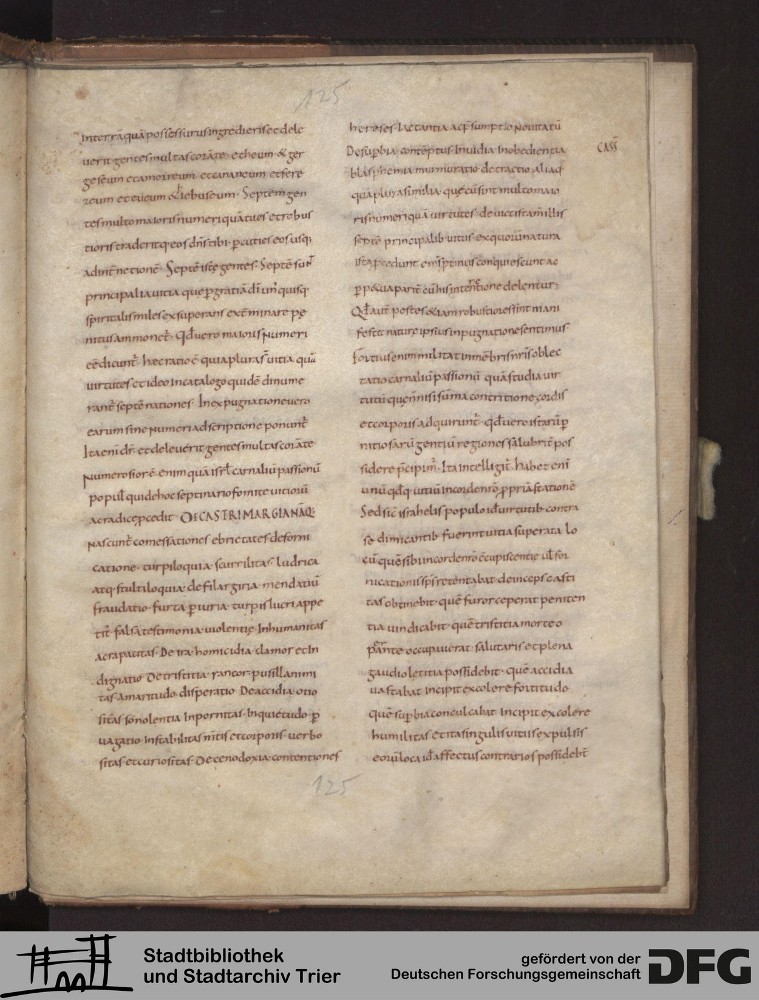 125
in terrā quā possessurus ingrederis et dele
uerit gentes multas corā te etheum & ger
geseum et amorreum et cananeum et fere
zeum et eueum & iebuseum Septem gen
tes multo maioris numeri quā tu es et robus
tioris tradideritq; eos dn̄s tibi pcuties eos usq;
ad int̄netionē Septē iste gentes Septē sun
principalia uitia que p gratiā dī un̄ quisq;
spiritalis miles exsuperans ext̄minare pe
nitus ammonet̄ Qd̄ uero maioris numeri
ēē dicunt̄ haec ratio ē quia plura s̄ uitia quā
uirtutes et ideo in catalogo quidē dinume
rant̄ septē nationes In expugnatione uero
earum sine numeri adscriptione ponunt̄
Ita enī dr̄ et deleuerit gentes multas corā te
Numerosior ē enim quā isrl̄ carnaliū passionū
popul̄ qui de hoc septinario fomite uitiorū
ac radice pcedit DE CASTRIMARGIA NĀQ;
nascunt̄ comessationes ebrietates de forni
catione turpiloquia scurrilitas ludrica
atq; stultiloquia de filargiria mendatiū
fraudatio furta piuria turpis lucri appe
tit̄ falsa testimonia uiolentie inhumanitas
ac rapacitas De ira homicidia clamor et in
dignatio De tristitia rancor pusillanimi
tas amaritudo disperatio De accidia otio
sitas somnolentia inpornitas inquietudo p
uagatio instabilitas m̄tis et corporis uerbo
sitas et curiositas De cenodoxia contentiones
hereses iactantia ac psumptio nouitatū
De supbia contēptus inuidia inobedientia
CASS̄
blasphemia murmuratio detractio aliaq;
quā plura similia que cū sint multo maio
ris numeri quā uirtutes deuictis tam̄ illis
septē principalib; uitiis ex quorū natura
ista pcedunt om̄s ptinus conquiescunt ac
ppetua parit̄ cū his int̄netione delentur
Qd̄ aut̄ postes etiam robustiores sint mani
feste nature ipsius inpugnatione sentimus
Fortius enim militat in mēbris nr̄is oblec
tatio carnaliū passionū quā studia uir
tutū que n̄ nisi summa contritione cordis
et corporis adquirunt̄ qd̄ uero istarū p
nitiosarū gentiū regiones salubrit̄ pos
sidere p̄cipim̄ Ita intelligit̄ habet enī
unū qd̄q; uitiū in corde nr̄o ppria stationē
Sed si c̄ israhelis populo id uirtutib; contra
se dimicantib; fuerint uitia superata lo
cū que sibi in corde nr̄o c̄cupiscentie ul̄ for
nicationis sps̄ retentabat deinceps casti
tas obtinebit quē furor ceperat peniten
tia uindicabit quē tristitia morte o
pante occupauerat salutaris et plena
gaudio letitia possidebit quē accidia
uastabat incipit excolere fortitudo
quē supbia conculcabat incipit excolere
humilitas et ita singulis uitiis expulsis
eorū loca id affectus contrarios possidebt̄
125
Stadtbibliothek
und Stadtarchiv Trier
gefördert von der
Deutschen Forschungsgemeinschaft
DFG